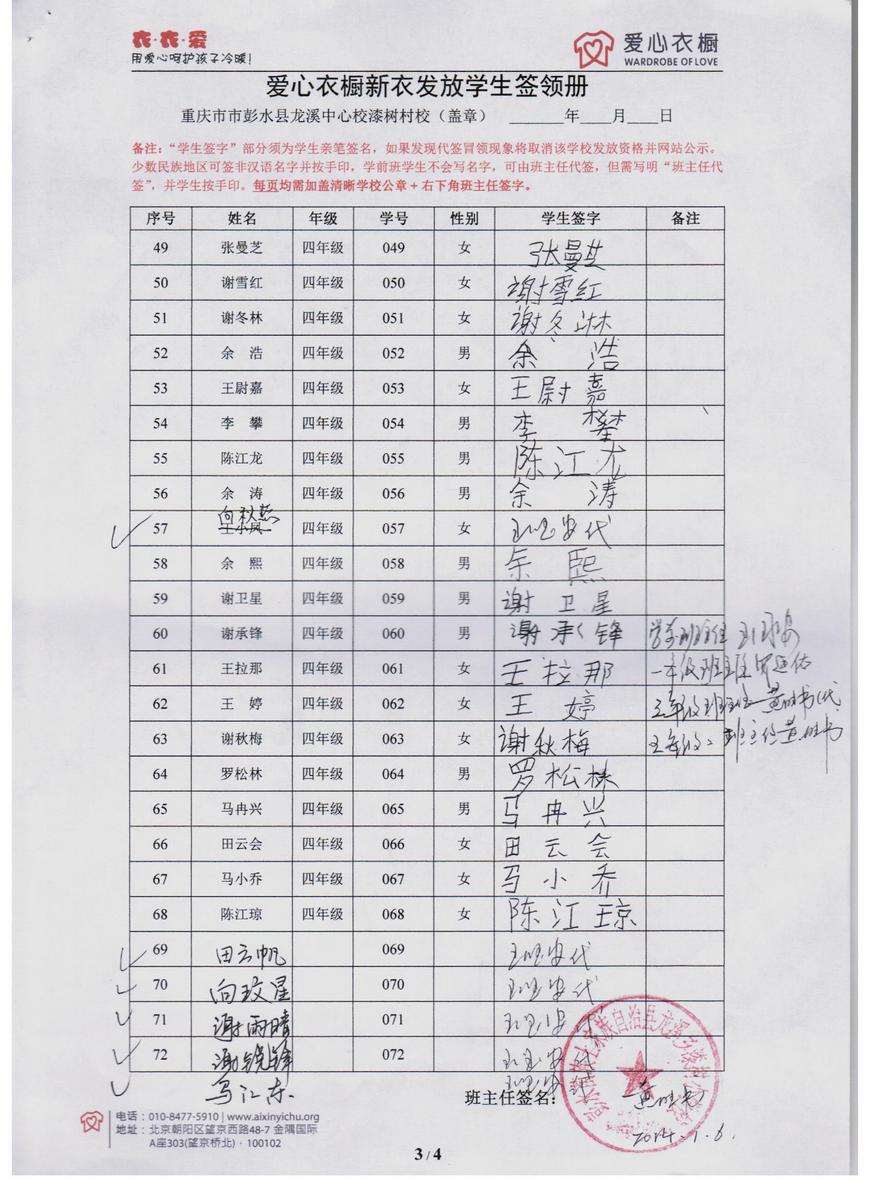 衣·衣·爱
用爱心呵护孩子冷暖!
爱心衣橱
WARDROBE OF LOVE
爱心衣橱新衣发放学生签领册
重庆市市彭水县龙溪中心校漆树村校（盖章） ______年____月____日
备注：“学生签字”部分须为学生亲笔签名，如果发现代签冒领现象将取消该学校发放资格并网站公示。
少数民族地区可签非汉语名字并按手印，学前班学生不会写名字，可由班主任代签，但需写明“班主任代
签”，并学生按手印。每页均需加盖清晰学校公章+右下角班主任签字。
序号 姓名 年级 学号 性别 学生签字 备注
49 张曼芝 四年级 049 女 张曼芝
50 谢雪红 四年级 050 女 谢雪红
51 谢冬林 四年级 051 女 谢冬淋
52 余 浩 四年级 052 男 余 浩
53 王尉嘉 四年级 053 女 王尉嘉
54 李 攀 四年级 054 男 李 攀
55 陈江龙 四年级 055 男 陈江龙
56 余 涛 四年级 056 男 余 涛
57 向秋燕 四年级 057 女
58 余 熙 四年级 058 男 余 熙
59 谢卫星 四年级 059 男 谢卫星
60 谢承锋 四年级 060 男 谢承锋
61 王拉那 四年级 061 女 王拉那
62 王 婷 四年级 062 女 王 婷
63 谢秋梅 四年级 063 女 谢秋梅
64 罗松林 四年级 064 男 罗松林
65 马冉兴 四年级 065 男 马冉兴
66 田云会 四年级 066 女 田云会
67 马小乔 四年级 067 女 马小乔
68 陈江琼 四年级 068 女 陈江琼
69 田云帆 069
70 向玟星 070
71 谢雨晴 071
72 谢锐锋 072
马江东
班主任签名：
2014.1.6.
电话：010-8477-5910 | www.aixinyichu.org
地址：北京朝阳区望京西路48-7 金隅国际
A座303(望京桥北)·100102
3 / 4